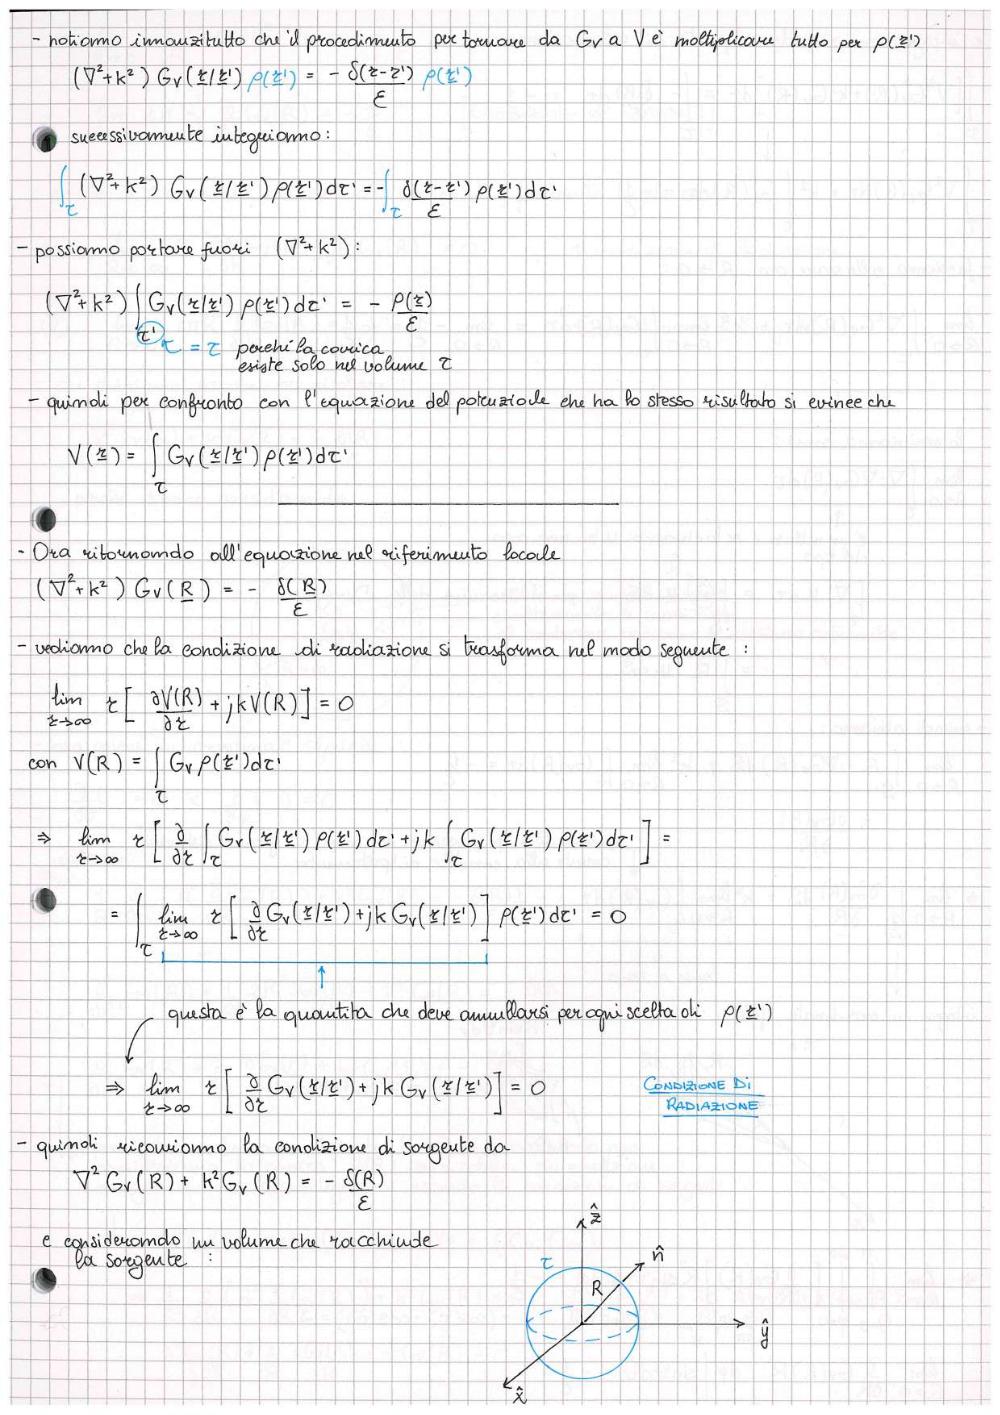 - notiamo innanzitutto che il procedimento per tornare da Gv a V è moltiplicare tutto per ρ(r')
(∇²+k²) Gv(r/r') ρ(r') = - δ(r-r')/ε ρ(r')
successivamente integriamo:
∫_τ (∇²+k²) Gv(r/r') ρ(r') dτ' = -∫_τ δ(r-r')/ε ρ(r') dτ'
- possiamo portare fuori (∇²+k²):
(∇²+k²) ∫_τ' Gv(r/r') ρ(r') dτ' = - ρ(r)/ε
τ = τ perché la carica
esiste solo nel volume τ
- quindi per confronto con l'equazione del potenziale che ha lo stesso risultato si evince che
V(r) = ∫_τ Gv(r/r') ρ(r') dτ'
- Ora ritornando all'equazione nel riferimento locale
(∇²+k²) Gv(R) = - δ(R)/ε
- vediamo che la condizione di radiazione si trasforma nel modo seguente :
lim r→∞ r [ ∂V(R)/∂r + jkV(R) ] = 0
con V(R) = ∫_τ Gv ρ(r') dτ'
⇒ lim r→∞ r [ ∂/∂r ∫_τ Gv(r/r') ρ(r') dτ' + jk ∫_τ Gv(r/r') ρ(r') dτ' ] =
= ∫_τ lim r→∞ r [ ∂/∂r Gv(r/r') + jk Gv(r/r') ] ρ(r') dτ' = 0
questa è la quantita che deve annullarsi per ogni scelta di ρ(r')
⇒ lim r→∞ r [ ∂/∂r Gv(r/r') + jk Gv(r/r') ] = 0
CONDIZIONE DI
RADIAZIONE
- quindi ricaviamo la condizione di sorgente da
∇² Gv(R) + k² Gv(R) = - δ(R)/ε
e considerando un volume che racchiude
la sorgente :
ẑ
τ
n̂
R
ŷ
x̂